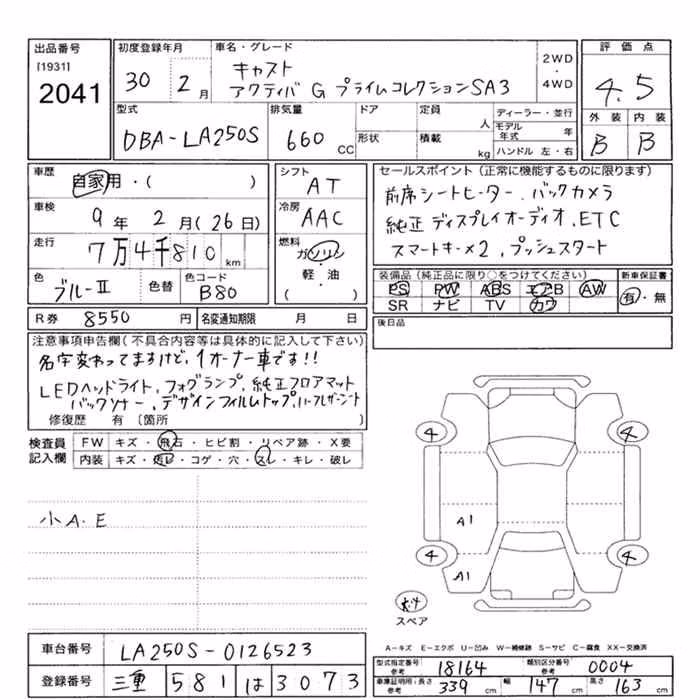 出品番号
[1931]
2041
初度登録年月
30 2月
車名・グレード
キャスト
アクティバ G プライムコレクションSA3
2WD
・
4WD
評価点
4.5
外装 内装
B B
型式
DBA-LA250S
排気量
660 CC
ドア
形状
定員 人
積載 kg
ディーラー・並行
モデル年式 年
ハンドル 左・右
車歴
自家用・( )
車検
9年 2月(26日)
走行
7万4千810km
色
ブルーⅡ
色替
色コード
B80
シフト
AT
冷房
AAC
燃料
ガソリン
軽・油
( )
セールスポイント(正常に機能するものに限ります)
前席シートヒーター、バックカメラ
純正ディスプレイオーディオ、ETC
スマートキー×2、プッシュスタート
装備品(純正品に限り○をつけてください)
PS PW ABS エアB AW
SR ナビ TV カワ
新車保証書
有・無
R券 8550円
名変通知期限 月 日
後日品
注意事項申告欄(不具合内容等は具体的に記入して下さい)
名字変わってますけど、1オーナー車です!!
LEDヘッドライト、フォグランプ、純正フロアマット
バックソナー、デザインフィルムトップ、
修復歴 有 〔箇所 〕
検査員
記入欄
FW キズ・飛石・ヒビ割・リペア跡・X要
内装 キズ・汚レ・コゲ・穴・スレ・キレ・破レ
小A.E
4 4
A1
4 4
A1
スペア
A-キズ E-エクボ U-凹み W-補修跡 S-サビ C-腐食 XX-交換済
車台番号 LA250S-0126523
登録番号 三重 581 は 3073
型式指定番号
参考
18164
類別区分番号
参考
0004
車庫証明用:長さ
参考
339 cm
幅 147 cm
高さ 163 cm